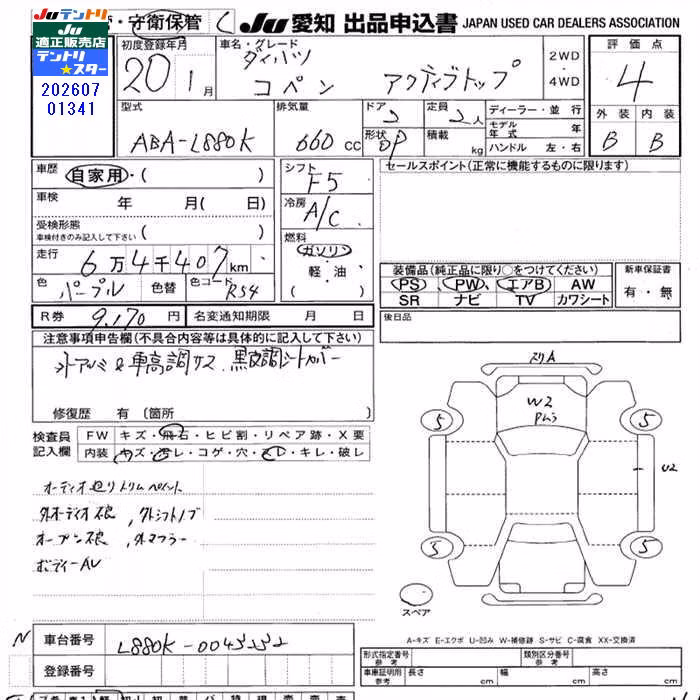 Juテントリ
Ju
適正販売店
テントリ
★スター
202607
01341
守衛保管
Ju 愛知 出品申込書 JAPAN USED CAR DEALERS ASSOCIATION
初度登録年月
20 1月
車名・グレード
ダイハツ
コペン アクティブトップ
2WD
4WD
評価点
4
外装 内装
B B
型式
ABA-L880K
排気量
660 cc
ドア 2
形状 OP
定員 2人
積載 kg
ディーラー・並行
モデル年式 年
ハンドル 左・右
車歴 自家用・( )
車検 年 月 ( 日)
受検形態
車検付きのみ記入して下さい ( )
走行 6万4千407km
色 パープル 色替 色コード R54
シフト
F5
冷房
A/C
燃料
ガソリン・
軽・油
( )
セールスポイント(正常に機能するものに限ります)
装備品(純正品に限り○をつけてください)
PS PW エアB AW
SR ナビ TV カワシート
新車保証書
有・無
R券 9,170円 名変通知期限 月 日
後日品
注意事項申告欄(不具合内容等は具体的に記入して下さい)
外アルミ & 車高調サス 黒皮調シートカバー
修復歴 有(箇所
検査員
記入欄
FW キズ・飛石・ヒビ割・リペア跡・X要
内装 キズ・汚レ・コゲ・穴・スレ・キレ・破レ
オーディオ廻りトリムペイント
外オーディオ不良, 外シフトノブ
オープン不良, 外マフラー
ボディーAU
スリA
W2
Pムラ
5 5
U2
5 5
スペア
A-キズ E-エクボ U-凹み W-補修跡 S-サビ C-腐食 XX-交換済
N 車台番号 L880K-
登録番号
形式指定番号
参考
類別区分番号
参考
車庫証明用
参考
長さ cm 幅 cm 高さ cm